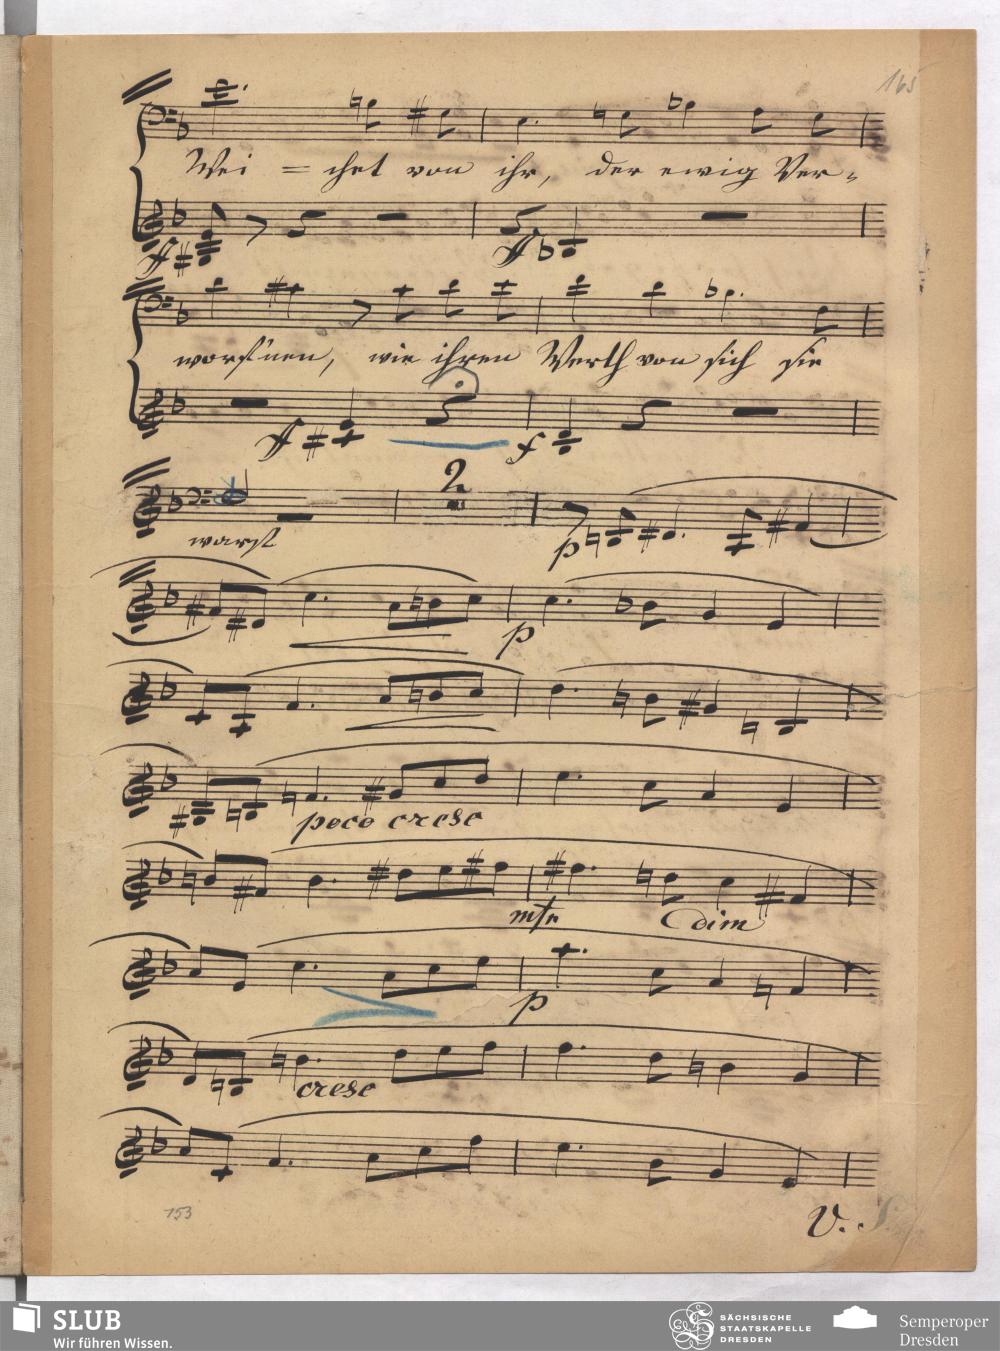 165
Wei = chet von ihr, der ewig Ver-
ff
ff
worf'nen, wie ihren Werth von sich sie
ff
f
2
warf
p
p
poco cresc
mfr
dim
p
cresc
153
V. S.
SLUB
Wir führen Wissen.
SÄCHSISCHE
STAATSKAPELLE
DRESDEN
Semperoper
Dresden